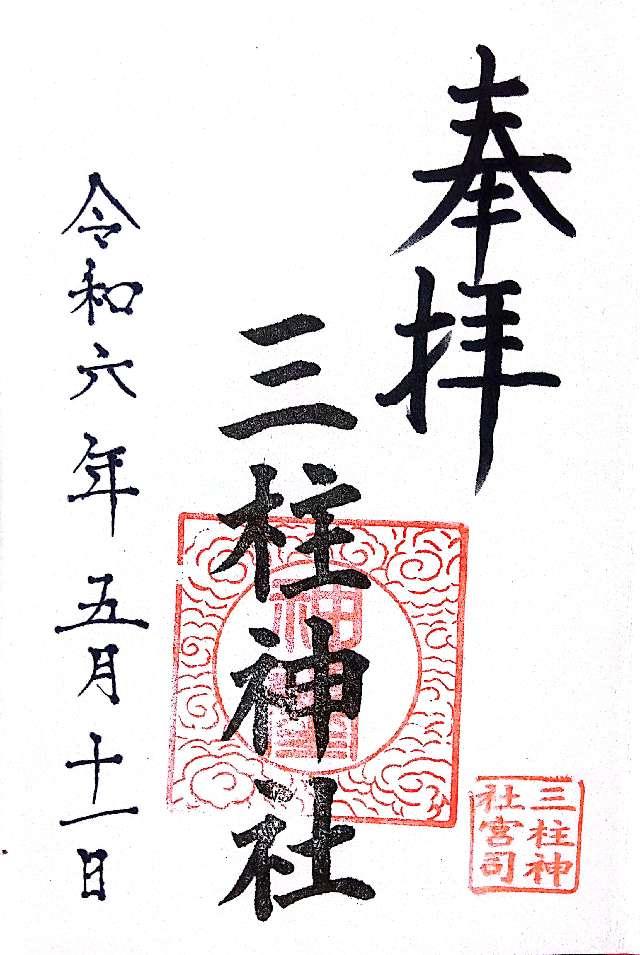 奉拝
三柱神社
令和六年五月十一日
三柱神
社宮司